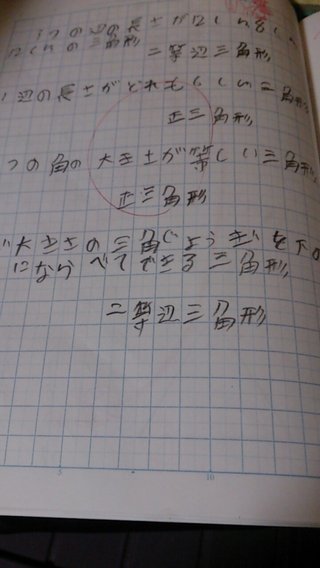 3つの辺の長さが12cm、8cm、
12cmの三角形
二等辺三角形
辺の長さがどれも cmの三角形
正三角形
つの角の大きさが等しい三角形
正三角形
大きさの三角じょうぎを下の
にならべてできる三角形
二等辺三角形
5 10